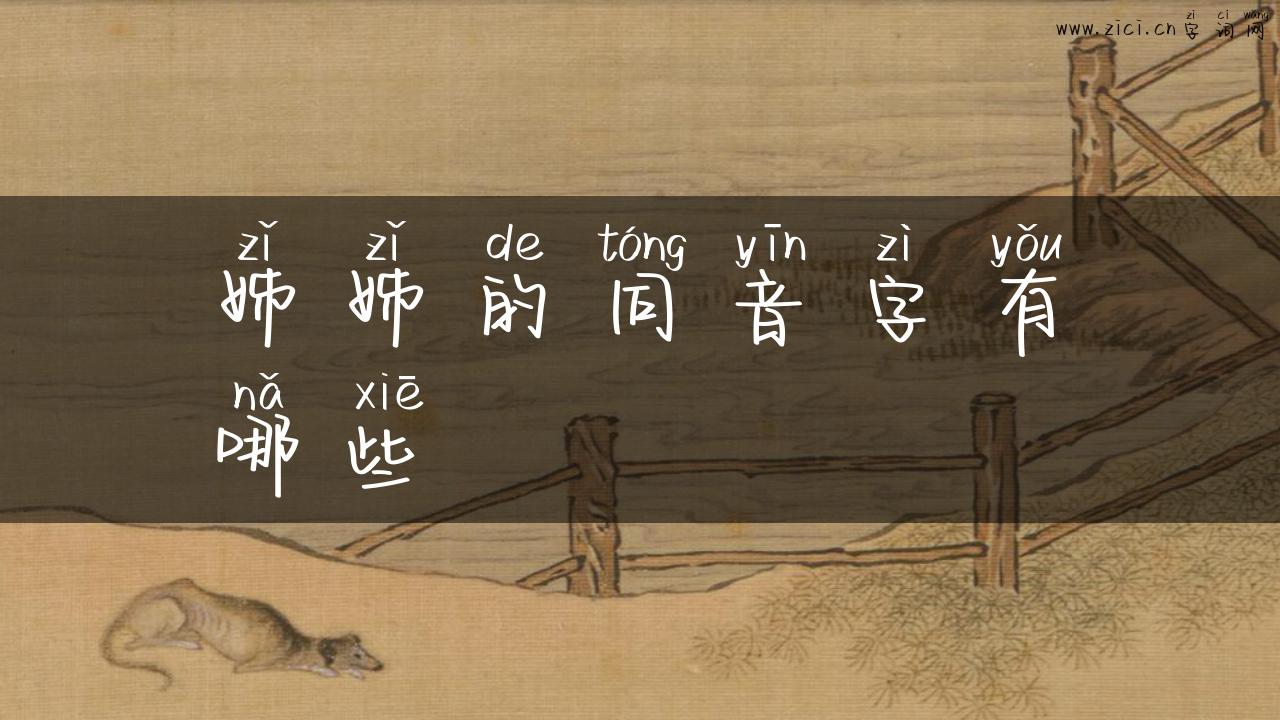 zì cí wǎng
www.zici.cn 字词网
zǐ zǐ de tóng yīn zì yǒu
姊姊的同音字有
nǎ xiē
哪些